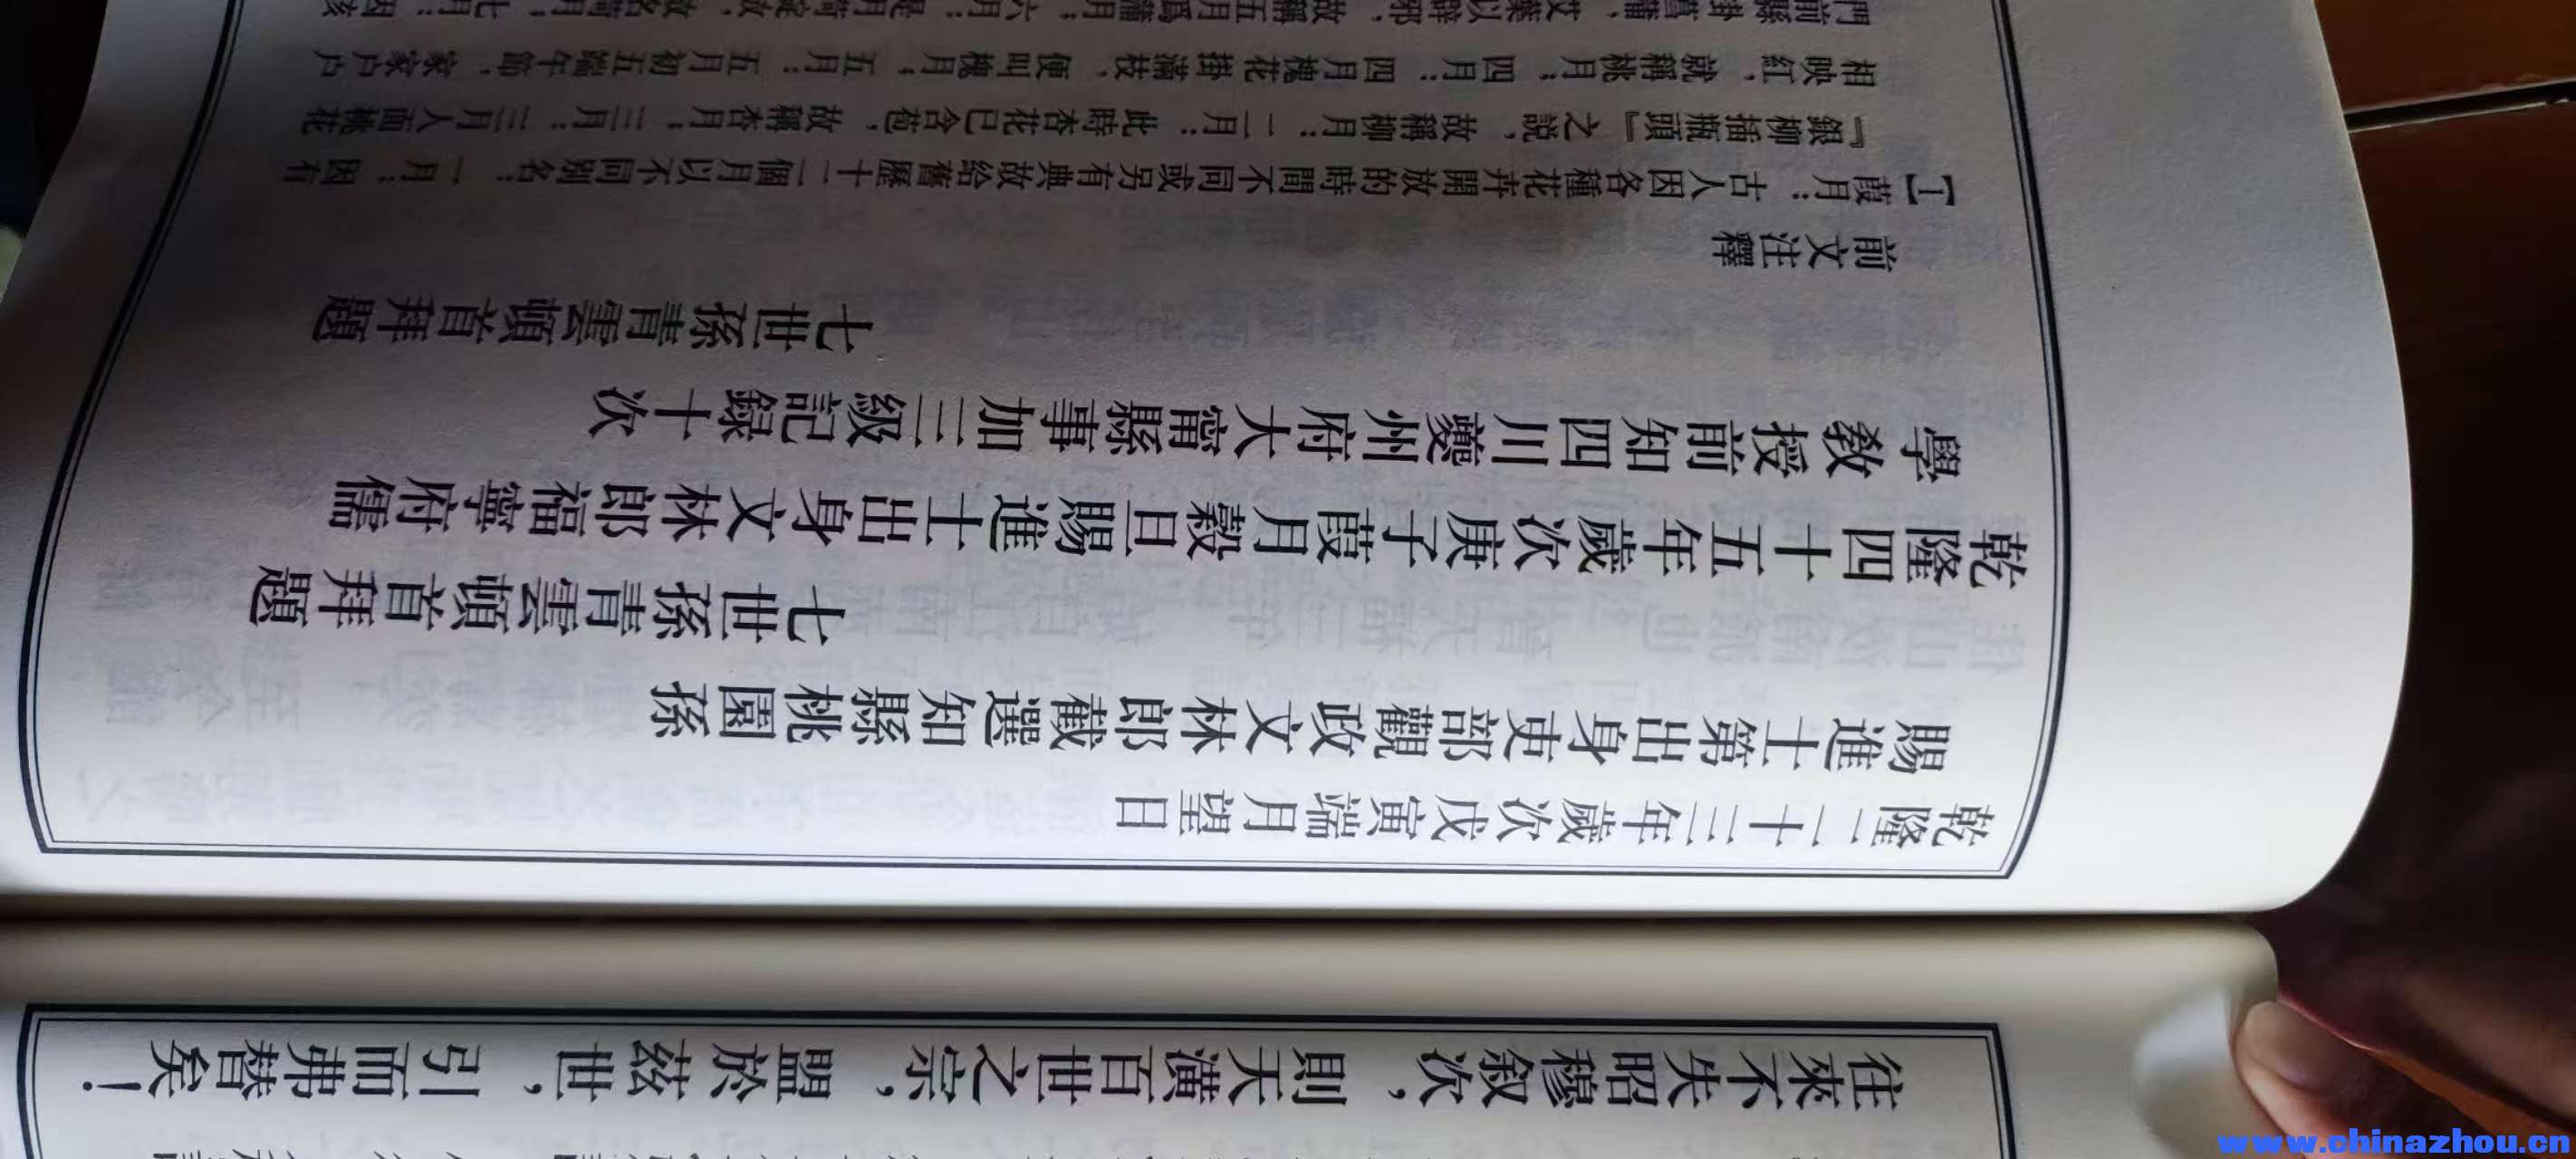 往來不失昭穆叙次，則天潢百世之宗，盟於茲世，引而弗替矣！
乾隆二十三年歲次戊寅端月望日
賜進士第出身吏部觀政文林郎截選知縣桃園孫
七世孫青雲頓首拜題
乾隆四十五年歲次庚子葭月穀旦賜進士出身文林郎福寧府儒
學教授前知四川夔州府大甯縣事加三級記録十次
七世孫青雲頓首拜題
前文注釋
【1】葭月：古人因各種花卉開放的時間不同或另有典故給舊歷十二個月以不同别名：一月：因有
『銀柳插瓶頭』之説，故稱柳月；二月：此時杏花已含苞，故稱杏月；三月：三月人面桃花
相映紅，就稱桃月；四月：四月槐花掛滿枝，便叫槐月；五月：五月初五端午節，家家户户
門前懸掛菖蒲，艾葉以辟邪，故稱五月爲蒲月；六月：是月荷綻放，故名荷月；七月：因該
www.chinazhou.cn